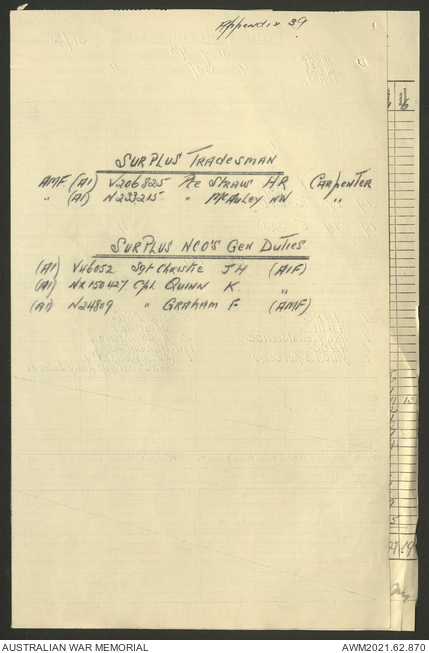 Appendix 39
SURPLUS TRADESMAN
AMF (A1) V206825 Pte STRAW HR CARPENTER
" (A1) N233215 " McAULEY NW "
SURPLUS NCO'S GEN DUTIES
(A1) V46052 Sgt Christie JH (AIF)
(A1) NX150427 Cpl QUINN K. "
(A1) N24809 " GRAHAM F. (AMF)
AUSTRALIAN WAR MEMORIAL
AWM2021.62.870